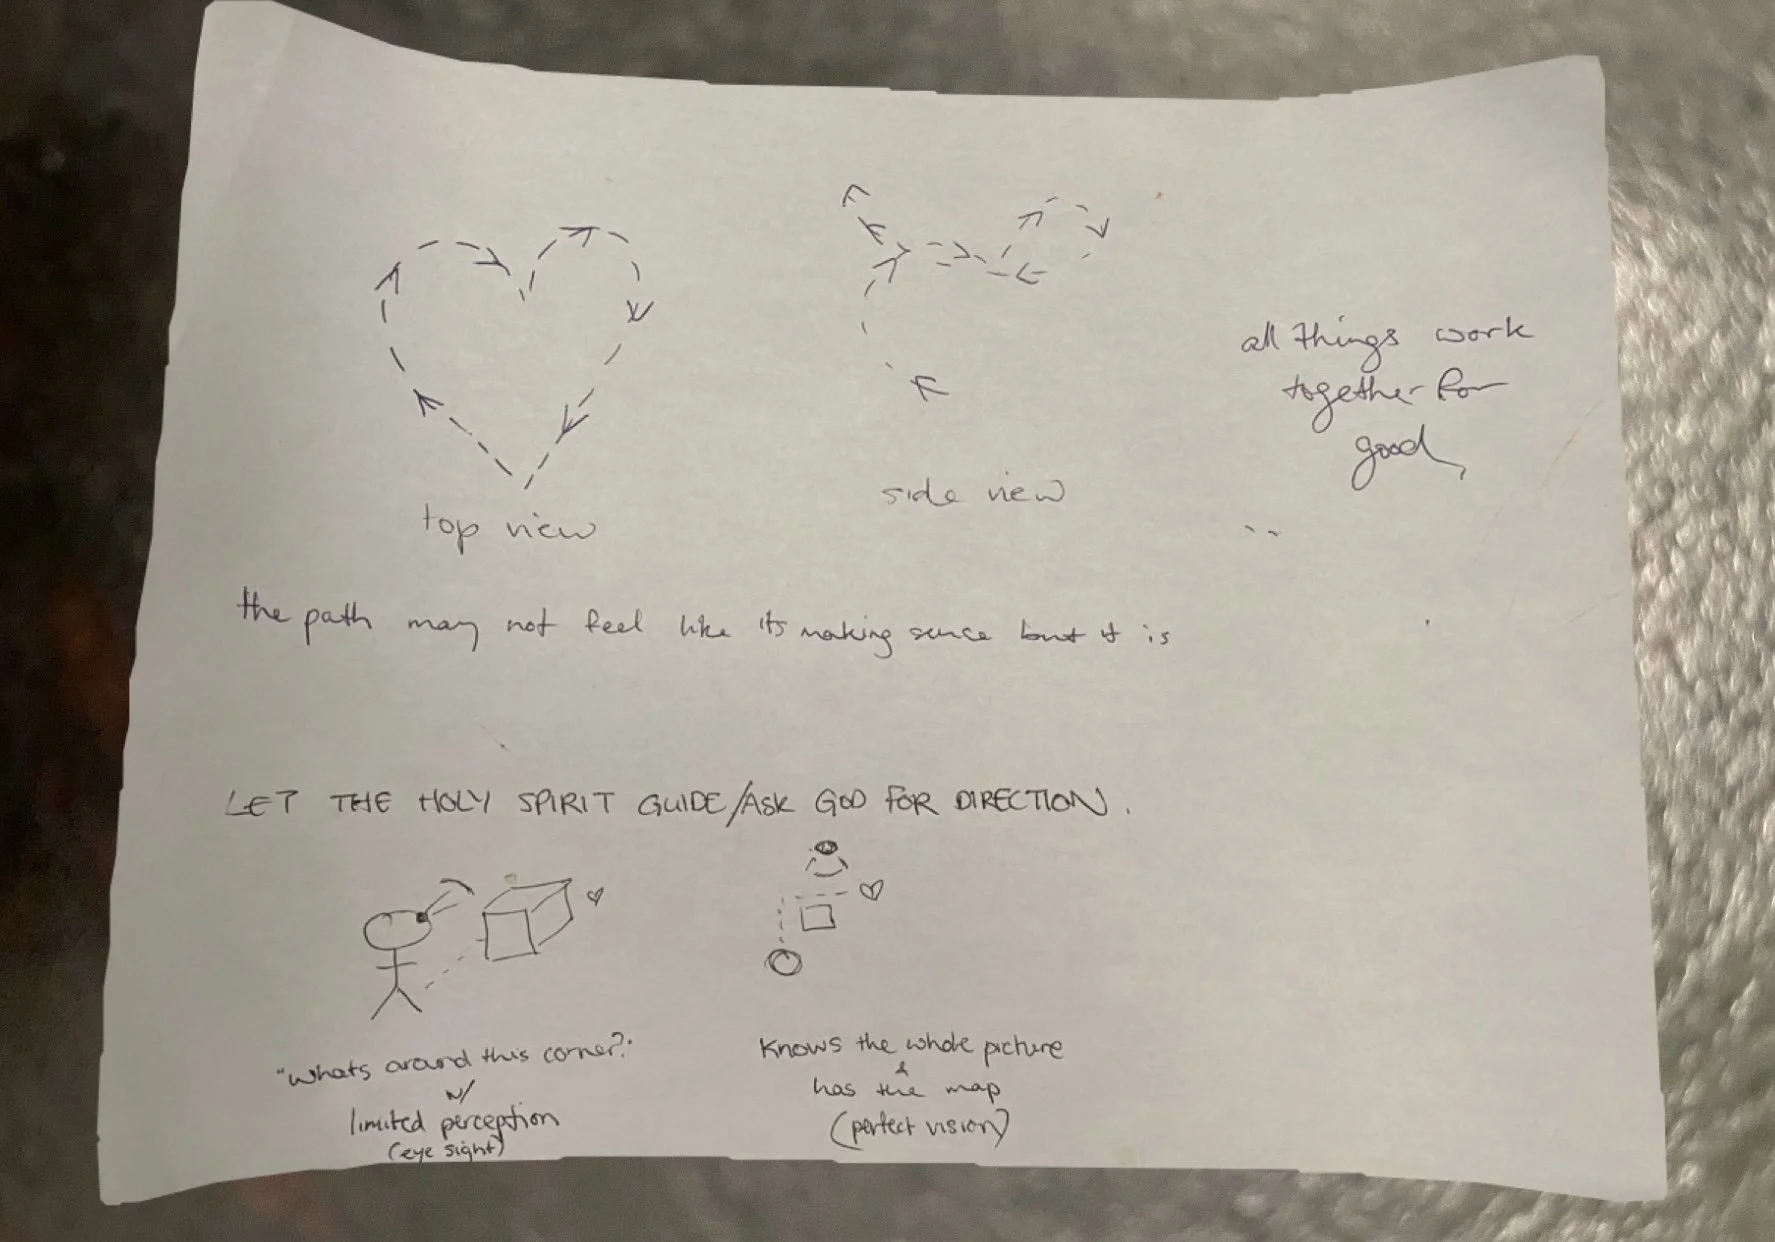 all things work
together for
good,
top view
side view
the path may not feel like its making sense but it is
LET THE HOLY SPIRIT GUIDE/ASK GOD FOR DIRECTION.
"whats around this corner?"
w/
limited perception
(eye sight)
Knows the whole picture
&
has the map
(perfect vision)